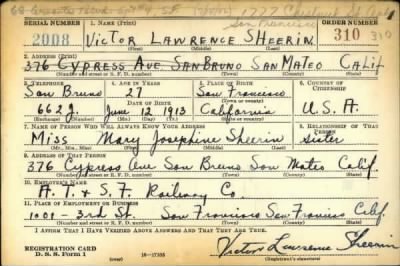 SERIAL NUMBER 1. NAME (Print) ORDER NUMBER
San Francisco
2008 VICTOR LAWRENCE SHEERIN 310 310
(First) (Middle) (Last)
2. ADDRESS (Print)
376 CYPRESS AVE. SAN BRUNO SAN MATEO CALIF
(Number and street or R. F. D. number) (Town) (County) (State)
3. TELEPHONE 4. AGE IN YEARS 5. PLACE OF BIRTH 6. COUNTRY OF CITIZENSHIP
San Bruno 27 San Francisco
DATE OF BIRTH (Town or county)
662J. June 12 1913 California U.S.A.
(Exchange) (Number) (Mo.) (Day) (Yr.) (State or country)
7. NAME OF PERSON WHO WILL ALWAYS KNOW YOUR ADDRESS 8. RELATIONSHIP OF THAT PERSON
Miss Mary Josephine Sheerin sister
(Mr., Mrs., Miss) (First) (Middle) (Last)
9. ADDRESS OF THAT PERSON
376 Cypress Ave San Bruno San Mateo Calif.
(Number and street or R. F. D. number) (Town) (County) (State)
10. EMPLOYER'S NAME
A. T. & S. F. Railway Co.
11. PLACE OF EMPLOYMENT OR BUSINESS
1001 - 3rd St. San Francisco San Francisco Calif.
(Number and street or R. F. D. number) (Town) (County) (State)
I AFFIRM THAT I HAVE VERIFIED ABOVE ANSWERS AND THAT THEY ARE TRUE.
REGISTRATION CARD
D. S. S. Form 1 16-17105 Victor Lawrence Sheerin
(Registrant's signature)